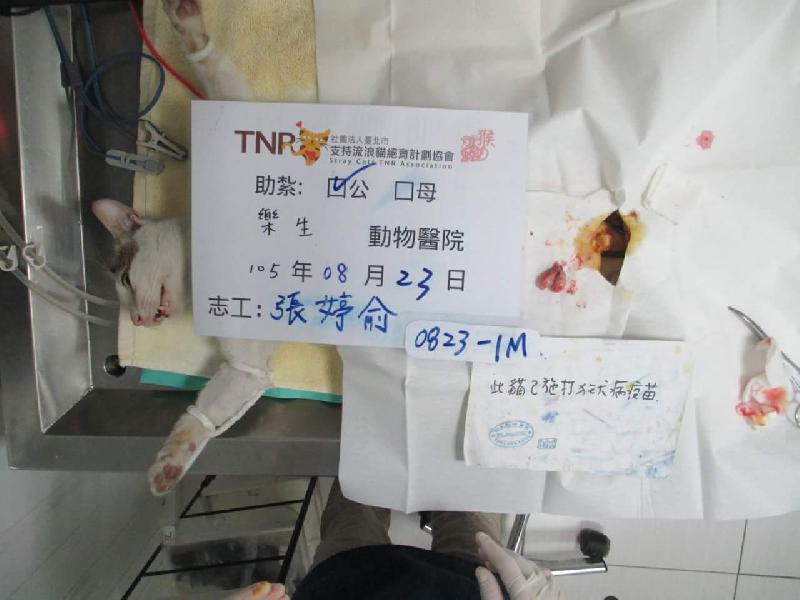 TNR
社團法人臺北市
支持流浪貓絕育計劃協會
Stray Cats TNR Association
猴
助紮: ☑公 □母
樂生 動物醫院
105年08月23日
志工: 張婷俞
0823-1M
此貓已施打狂犬病疫苗